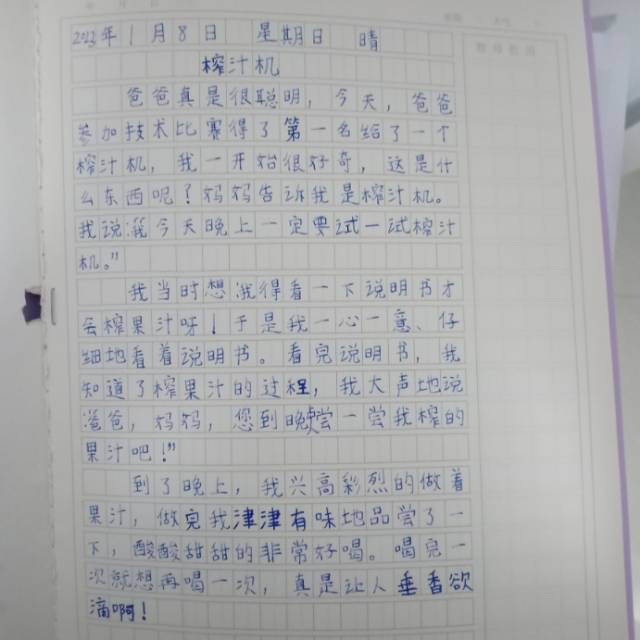 2023年1月8日 星期日 晴
榨汁机
爸爸真是很聪明，今天，爸爸
参加技术比赛得了第一名给了一个
榨汁机，我一开始很好奇，这是什
么东西呢？妈妈告诉我是榨汁机。
我说:“我今天晚上一定要试一试榨汁
机。”
我当时想:我得看一下说明书才
会榨果汁呀！于是我一心一意、仔
细地看着说明书。看完说明书，我
知道了榨果汁的过程，我大声地说
:“爸爸，妈妈，您到晚尝一尝我榨的
果汁吧！”
到了晚上，我兴高彩烈的做着
果汁，做完我津津有味地品尝了一
下，酸酸甜甜的非常好喝。喝完一
次就想再喝一次，真是让人垂香欲
滴啊！